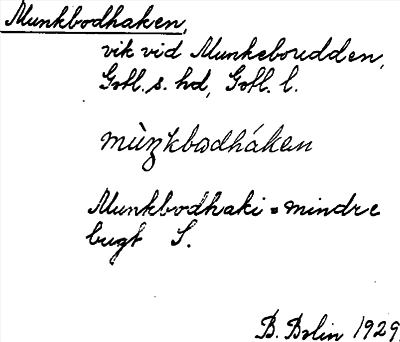 Munkbodhaken,
vik vid Munkeboudden,
Gotl. s. hd, Gotl. l.
mùŋkbodháken
Munkbodhaki = mindre
bugt S.
B. Bolin 1929.